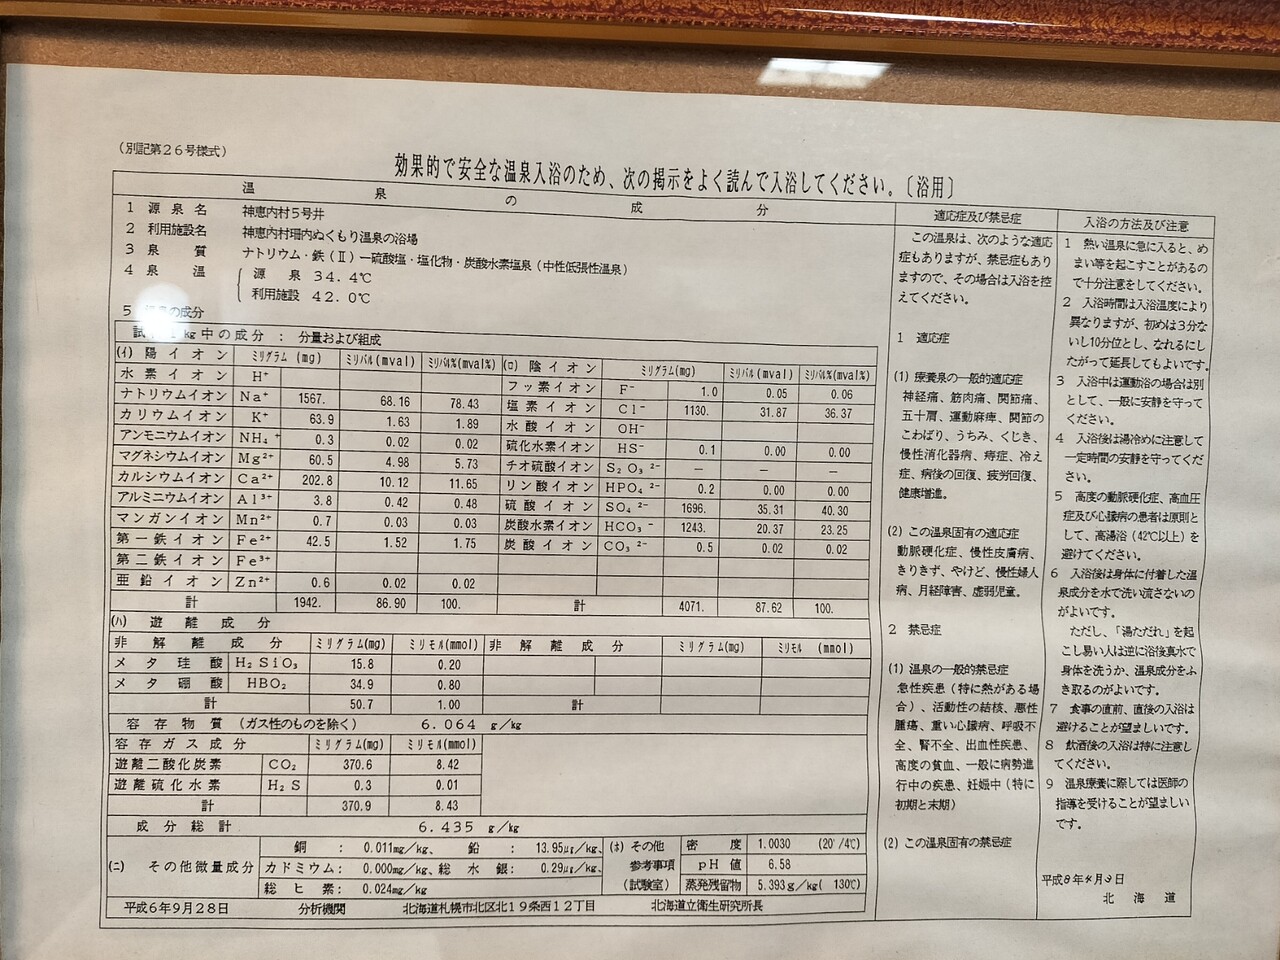 (別記第26号様式)
効果的で安全な温泉入浴のため、次の掲示をよく読んで入浴してください。〔浴用〕
温泉の成分
1 源泉名 神恵内村5号井
2 利用施設名 神恵内村珊内ぬくもり温泉の浴場
3 泉質 ナトリウム・鉄(Ⅱ)ー硫酸塩・塩化物・炭酸水素塩泉(中性低張性温泉)
4 泉温 源泉 34.4℃
利用施設 42.0℃
5 の成分
kg中の成分: 分量および組成
(イ) 陽イオン ミリグラム (mg) ミリバル(mval) ミリバル%(mval%)
水素イオン H⁺
ナトリウムイオン Na⁺ 1567. 68.16 78.43
カリウムイオン K⁺ 63.9 1.63 1.89
アンモニウムイオン NH₄⁺ 0.3 0.02 0.02
マグネシウムイオン Mg²⁺ 60.5 4.98 5.73
カルシウムイオン Ca²⁺ 202.8 10.12 11.65
アルミニウムイオン Al³⁺ 3.8 0.42 0.48
マンガンイオン Mn²⁺ 0.7 0.03 0.03
第一鉄イオン Fe²⁺ 42.5 1.52 1.75
第二鉄イオン Fe³⁺
亜鉛イオン Zn²⁺ 0.6 0.02 0.02
計 1942. 86.90 100.
(ロ) 陰イオン ミリグラム(mg) ミリバル(mval) ミリバル%(mval%)
フッ素イオン F⁻ 1.0 0.05 0.06
塩素イオン Cl⁻ 1130. 31.87 36.37
水酸イオン OH⁻
硫化水素イオン HS⁻ 0.1 0.00 0.00
チオ硫酸イオン S₂O₃²⁻ — — —
リン酸イオン HPO₄²⁻ 0.2 0.00 0.00
硫酸イオン SO₄²⁻ 1696. 35.31 40.30
炭酸水素イオン HCO₃⁻ 1243. 20.37 23.25
炭酸イオン CO₃²⁻ 0.5 0.02 0.02
計 4071. 87.62 100.
(ハ) 遊離成分
非解離成分 ミリグラム(mg) ミリモル(mmol) 非解離成分 ミリグラム(mg) ミリモル (mmol)
メタ珪酸 H₂SiO₃ 15.8 0.20
メタ硼酸 HBO₂ 34.9 0.80
計 50.7 1.00 計
容存物質(ガス性のものを除く) 6.064 g/kg
容存ガス成分 ミリグラム(mg) ミリモル(mmol)
遊離二酸化炭素 CO₂ 370.6 8.42
遊離硫化水素 H₂S 0.3 0.01
計 370.9 8.43
成分総計 6.435 g/kg
(ニ) その他微量成分
銅: 0.011mg/kg、 鉛: 13.95μg/kg、
カドミウム: 0.000mg/kg、総水銀: 0.29μg/kg、
総ヒ素: 0.024mg/kg
(ホ) その他
参考事項
(試験室)
密度 1.0030 (20°/4℃)
pH値 6.58
蒸発残留物 5.393g/kg( 130℃)
平成6年9月28日 分析機関 北海道札幌市北区北19条西12丁目 北海道立衛生研究所長
適応症及び禁忌症
この温泉は、次のような適応
症もありますが、禁忌症もあり
ますので、その場合は入浴を控
えてください。
1 適応症
(1) 療養泉の一般的適応症
神経痛、筋肉痛、関節痛、
五十肩、運動麻痺、関節の
こわばり、うちみ、くじき、
慢性消化器病、痔症、冷え
症、病後の回復、疲労回復、
健康増進。
(2) この温泉固有の適応症
動脈硬化症、慢性皮膚病、
きりきず、やけど、慢性婦人
病、月経障害、虚弱児童。
2 禁忌症
(1) 温泉の一般的禁忌症
急性疾患(特に熱がある場
合)、活動性の結核、悪性
腫瘍、重い心臓病、呼吸不
全、腎不全、出血性疾患、
高度の貧血、一般に病勢進
行中の疾患、妊娠中(特に
初期と末期)
(2) この温泉固有の禁忌症
入浴の方法及び注意
1 熱い温泉に急に入ると、め
まい等を起こすことがあるの
で十分注意をしてください。
2 入浴時間は入浴温度により
異なりますが、初めは3分な
いし10分位とし、なれるにし
たがって延長してもよいです。
3 入浴中は運動浴の場合は別
として、一般に安静を守って
ください。
4 入浴後は湯冷めに注意して
一定時間の安静を守ってくだ
さい。
5 高度の動脈硬化症、高血圧
症及び心臓病の患者は原則と
して、高湯浴(42℃以上)を
避けてください。
6 入浴後は身体に付着した温
泉成分を水で洗い流さないの
がよいです。
ただし、「湯ただれ」を起
こし易い人は逆に浴後真水で
身体を洗うか、温泉成分をふ
き取るのがよいです。
7 食事の直前、直後の入浴は
避けることが望ましいです。
8 飲酒後の入浴は特に注意し
てください。
9 温泉療養に際しては医師の
指導を受けることが望ましい
です。
平成8年 月 日
北海道